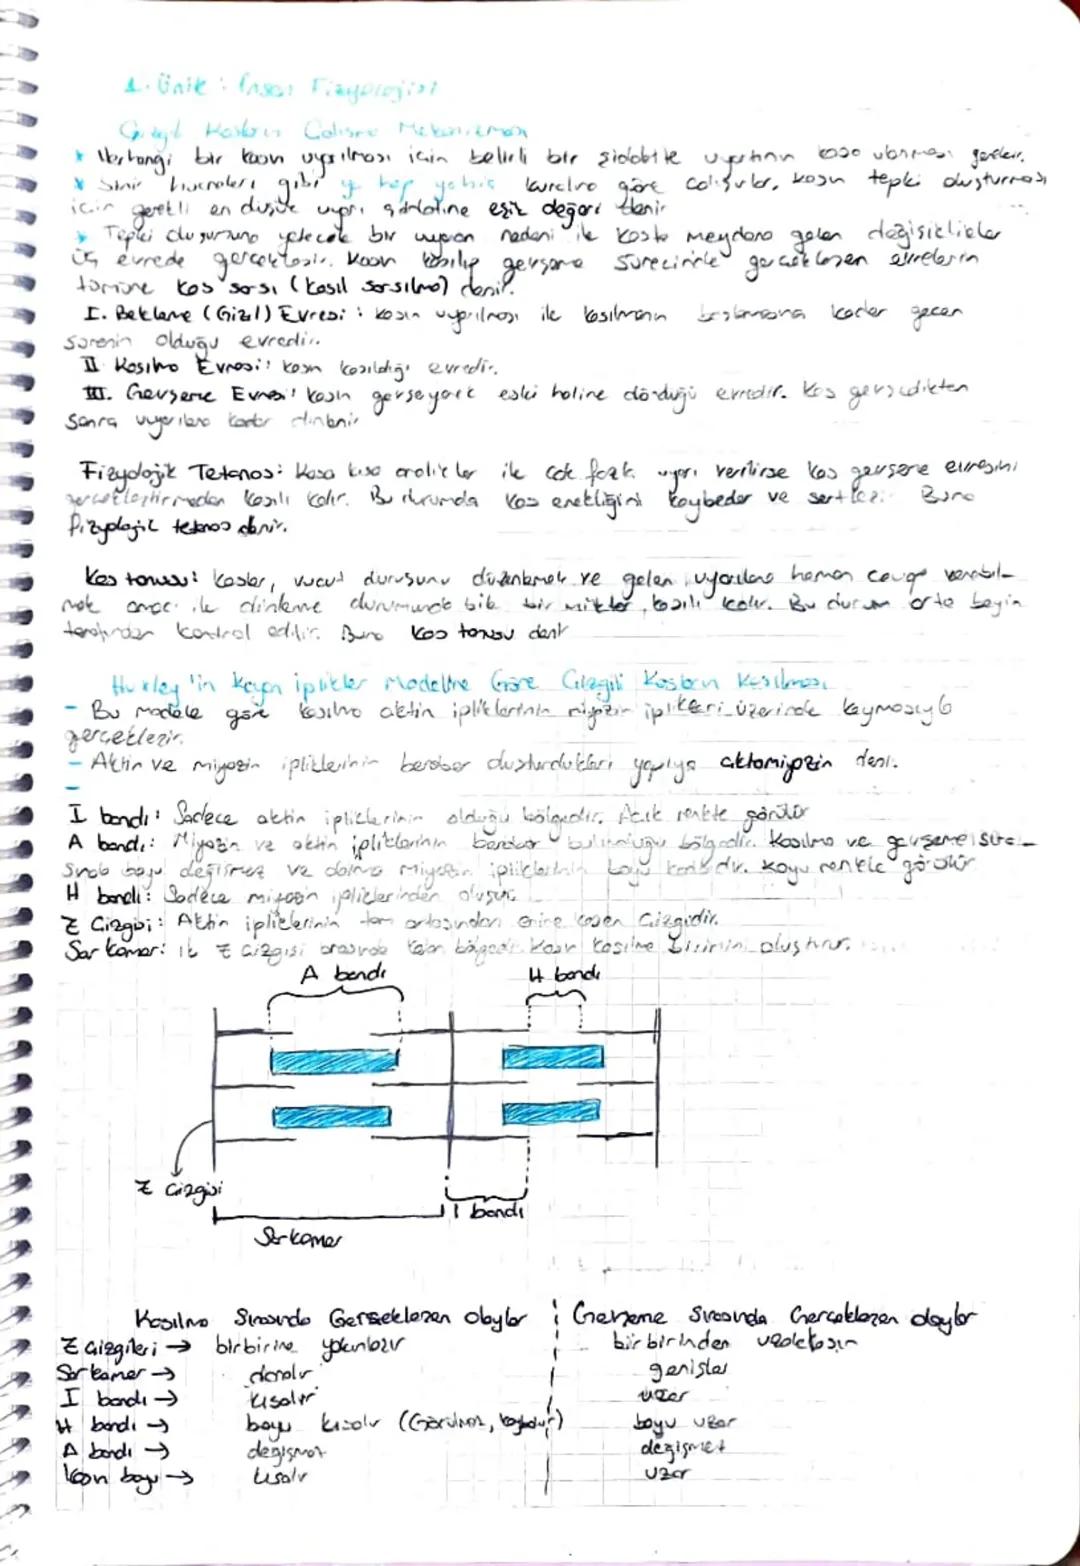 1. Ünite: İnsan Fizyolojisi
Çizgili Kasların Çalışma Mekanizması
* Herhangi bir kasın uyarılması için belirli bir şiddette uyartının kasa ulaşması gerekir.
* Sinir hücreleri gibi ya hep ya hiç kuralına göre çalışırlar, kasın tepki oluşturması
için gerekli en düşük uyarı şiddetine eşik değeri denir
* Tepki oluşturmaya yetecek bir uyaran nedeni ile kasta meydana gelen değişiklikler
üç evrede gerçekleşir. Kasın kasılıp gevşeme sürecinde gerçekleşen evrelerin
tümüne kas sarsı (kasıl sarsılma) denir.
I. Bekleme (Gizli) Evresi: kasın uyarılması ile kasılmanın başlamasına kadar geçen
sürenin olduğu evredir.
II. Kasılma Evresi: kasın kasıldığı evredir.
III. Gevşeme Evresi: kasın gevşeyerek eski haline döndüğü evredir. Kas gevşedikten
sonra uyarılana kadar dinlenir
Fizyolojik Tetanos: Kasa kısa aralıklar ile çok fazla uyarı verilirse kas gevşeme evresini
gerçekleştirmeden kasılı kalır. Bu durumda kas esnekliğini kaybeder ve sertleşir. Buna
fizyolojik tetanos denir.
Kas tonusu: Kaslar, vücut duruşunu düzenlemek ve gelen uyarılara hemen cevap verebil-
mek amacı ile dinlenme durumunda bile bir miktar kasılı kalır. Bu durum orta beyin
tarafından kontrol edilir. Buna kas tonusu denir
Huxley'in kayan iplikler Modeline Göre Çizgili Kasların Kasılması
- Bu modele göre kasılma aktin ipliklerinin miyozin iplikleri üzerinde kaymasıyla
gerçekleşir.
- Aktin ve miyozin ipliklerinin beraber oluşturdukları yapıya aktomiyozin denir.
-
I bandı: Sadece aktin ipliklerinin olduğu bölgedir. Açık renkte görülür
A bandı: Miyozin ve aktin ipliklerinin beraber bulunduğu bölgedir. Kasılma ve gevşeme sıra-
sında boyu değişmez ve daima miyozin ipliklerinin boyu kadardır. Koyu renkte görülür
H bandı: Sadece miyozin ipliklerinden oluşur.
Z Çizgisi: Aktin ipliklerinin tam ortasından enine kesen çizgidir.
Sarkomer: İki Z çizgisi arasında kalan bölgedir. Kasın kasılma birimini oluşturur.
A bandı
H bandı
Z Çizgisi
I bandı
Sarkomer
Kasılma Sırasında Gerçekleşen olaylar
Gevşeme Sırasında Gerçekleşen olaylar
Z çizgileri → birbirine yakınlaşır
birbirinden uzaklaşır
Sarkomer → daralır
genişler
I bandı → kısalır
uzar
H bandı → boyu kısalır (Görülmez, kaybolur)
boyu uzar
A bandı → değişmez
değişmez
Kasın boyu → kısalır
uzar